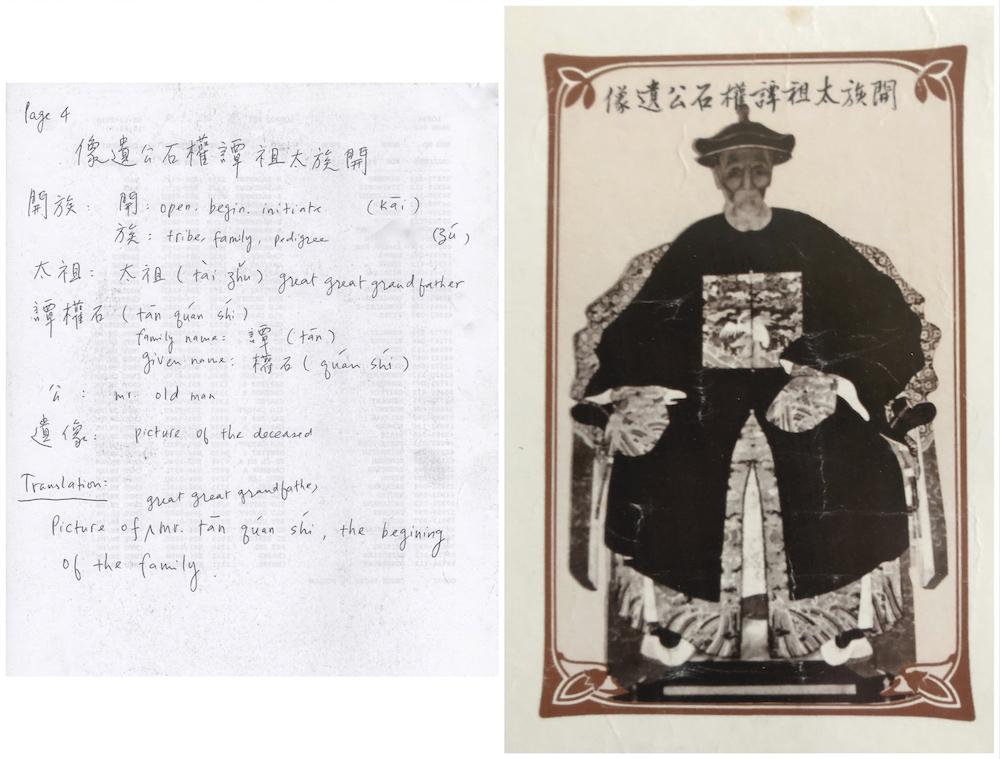 Page 4
像遺公石權譚祖太族開
開族: 開: open. begin. initiate (kāi)
族: tribe, family, pedigree (zú)
太祖: 太祖 (tài zhǔ) great great grandfather
譚權石 (tān quán shí)
family name: 譚 (tān)
given name: 權石 (quán shí)
公: mr. old man
遺像: picture of the deceased
Translation:
great great grandfather
Picture of ^ mr. tān quán shí, the begining
of the family.
像遺公石權譚祖太族開